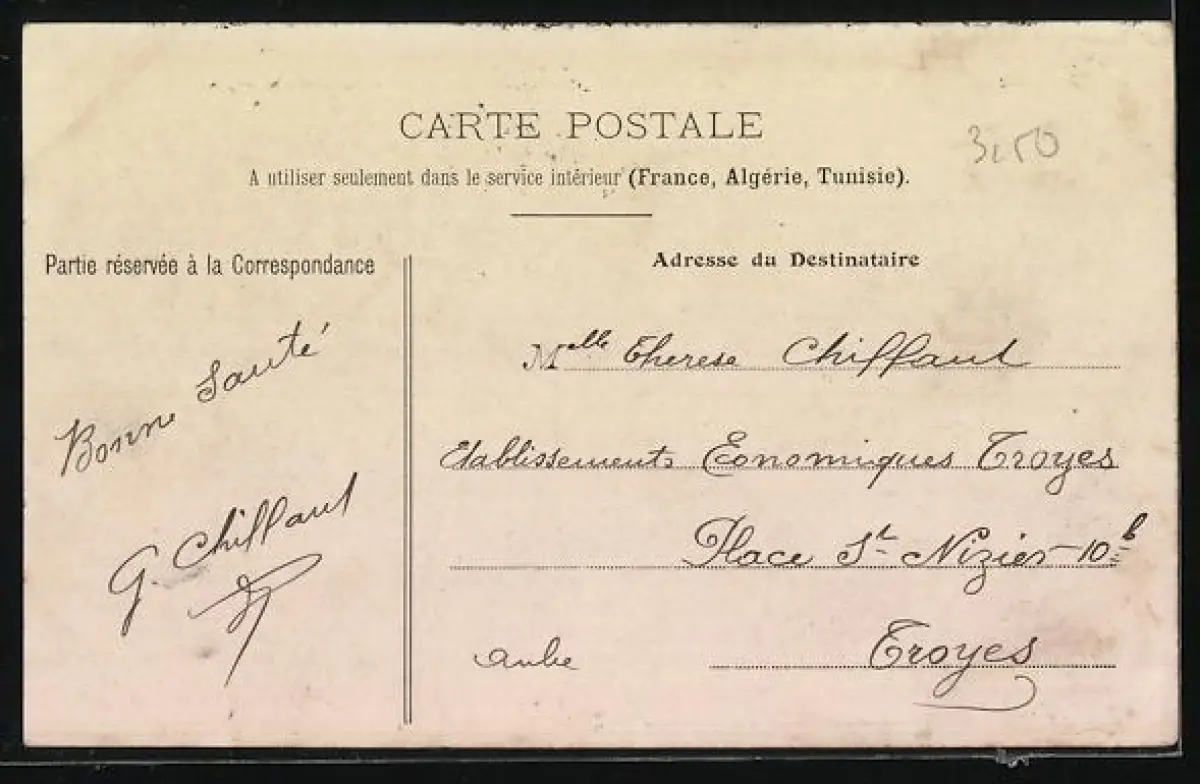 CARTE POSTALE
3,50
A utiliser seulement dans le service intérieur (France, Algérie, Tunisie).
Partie réservée à la Correspondance
Bonne Santé
G. Chiffaut
Adresse du Destinataire
Melle Therese Chiffaut
Etablissements Economiques Troyes
Place St Nizier 10 b
Troyes
Aube